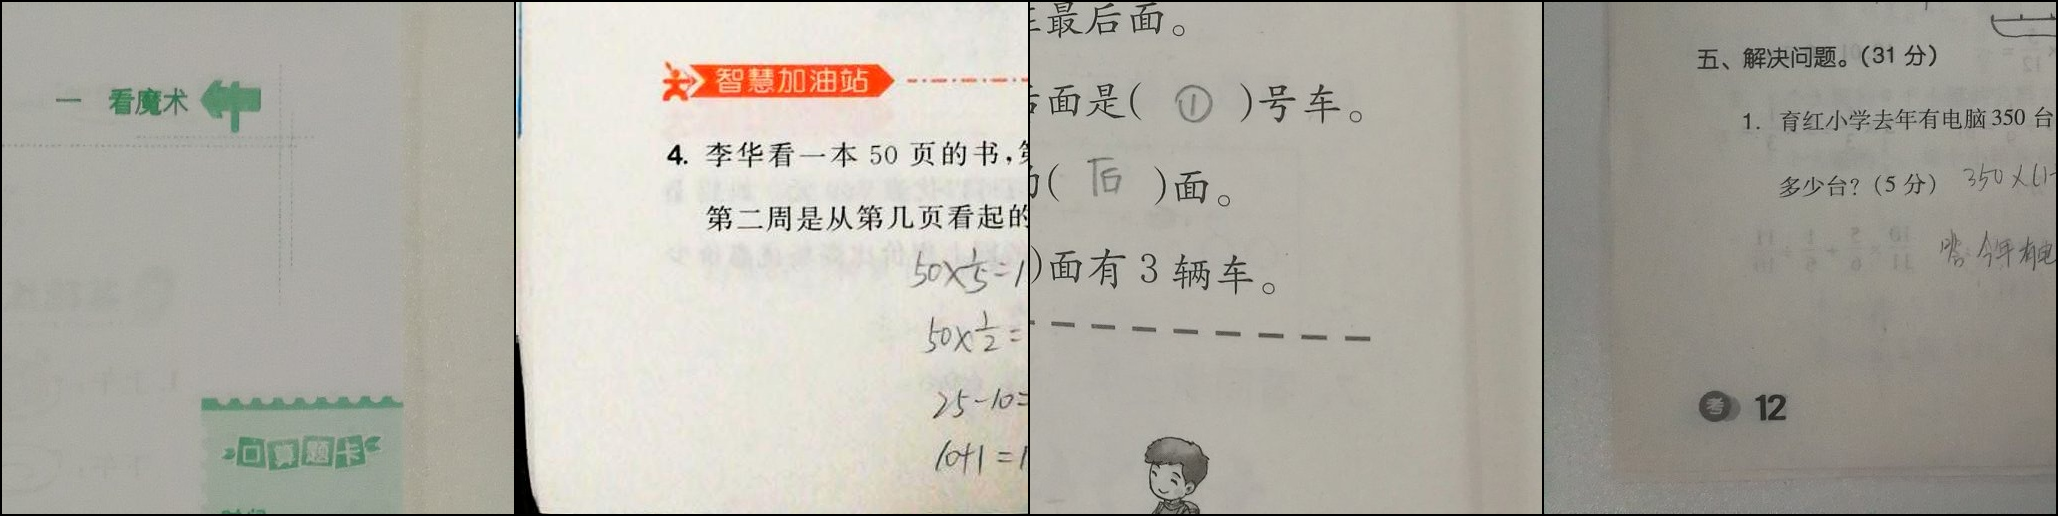 一 看魔术
口算题卡
智慧加油站
4. 李华看一本 50 页的书，第
第二周是从第几页看起的
50×1/5=1
50×1/2=
25-10=
10+1=1
最后面。
后面是( ① )号车。
( 后 )面。
)面有 3 辆车。
五、解决问题。(31 分)
1. 育红小学去年有电脑 350 台
多少台？(5 分) 350×(1-
答：今年有电
考 12